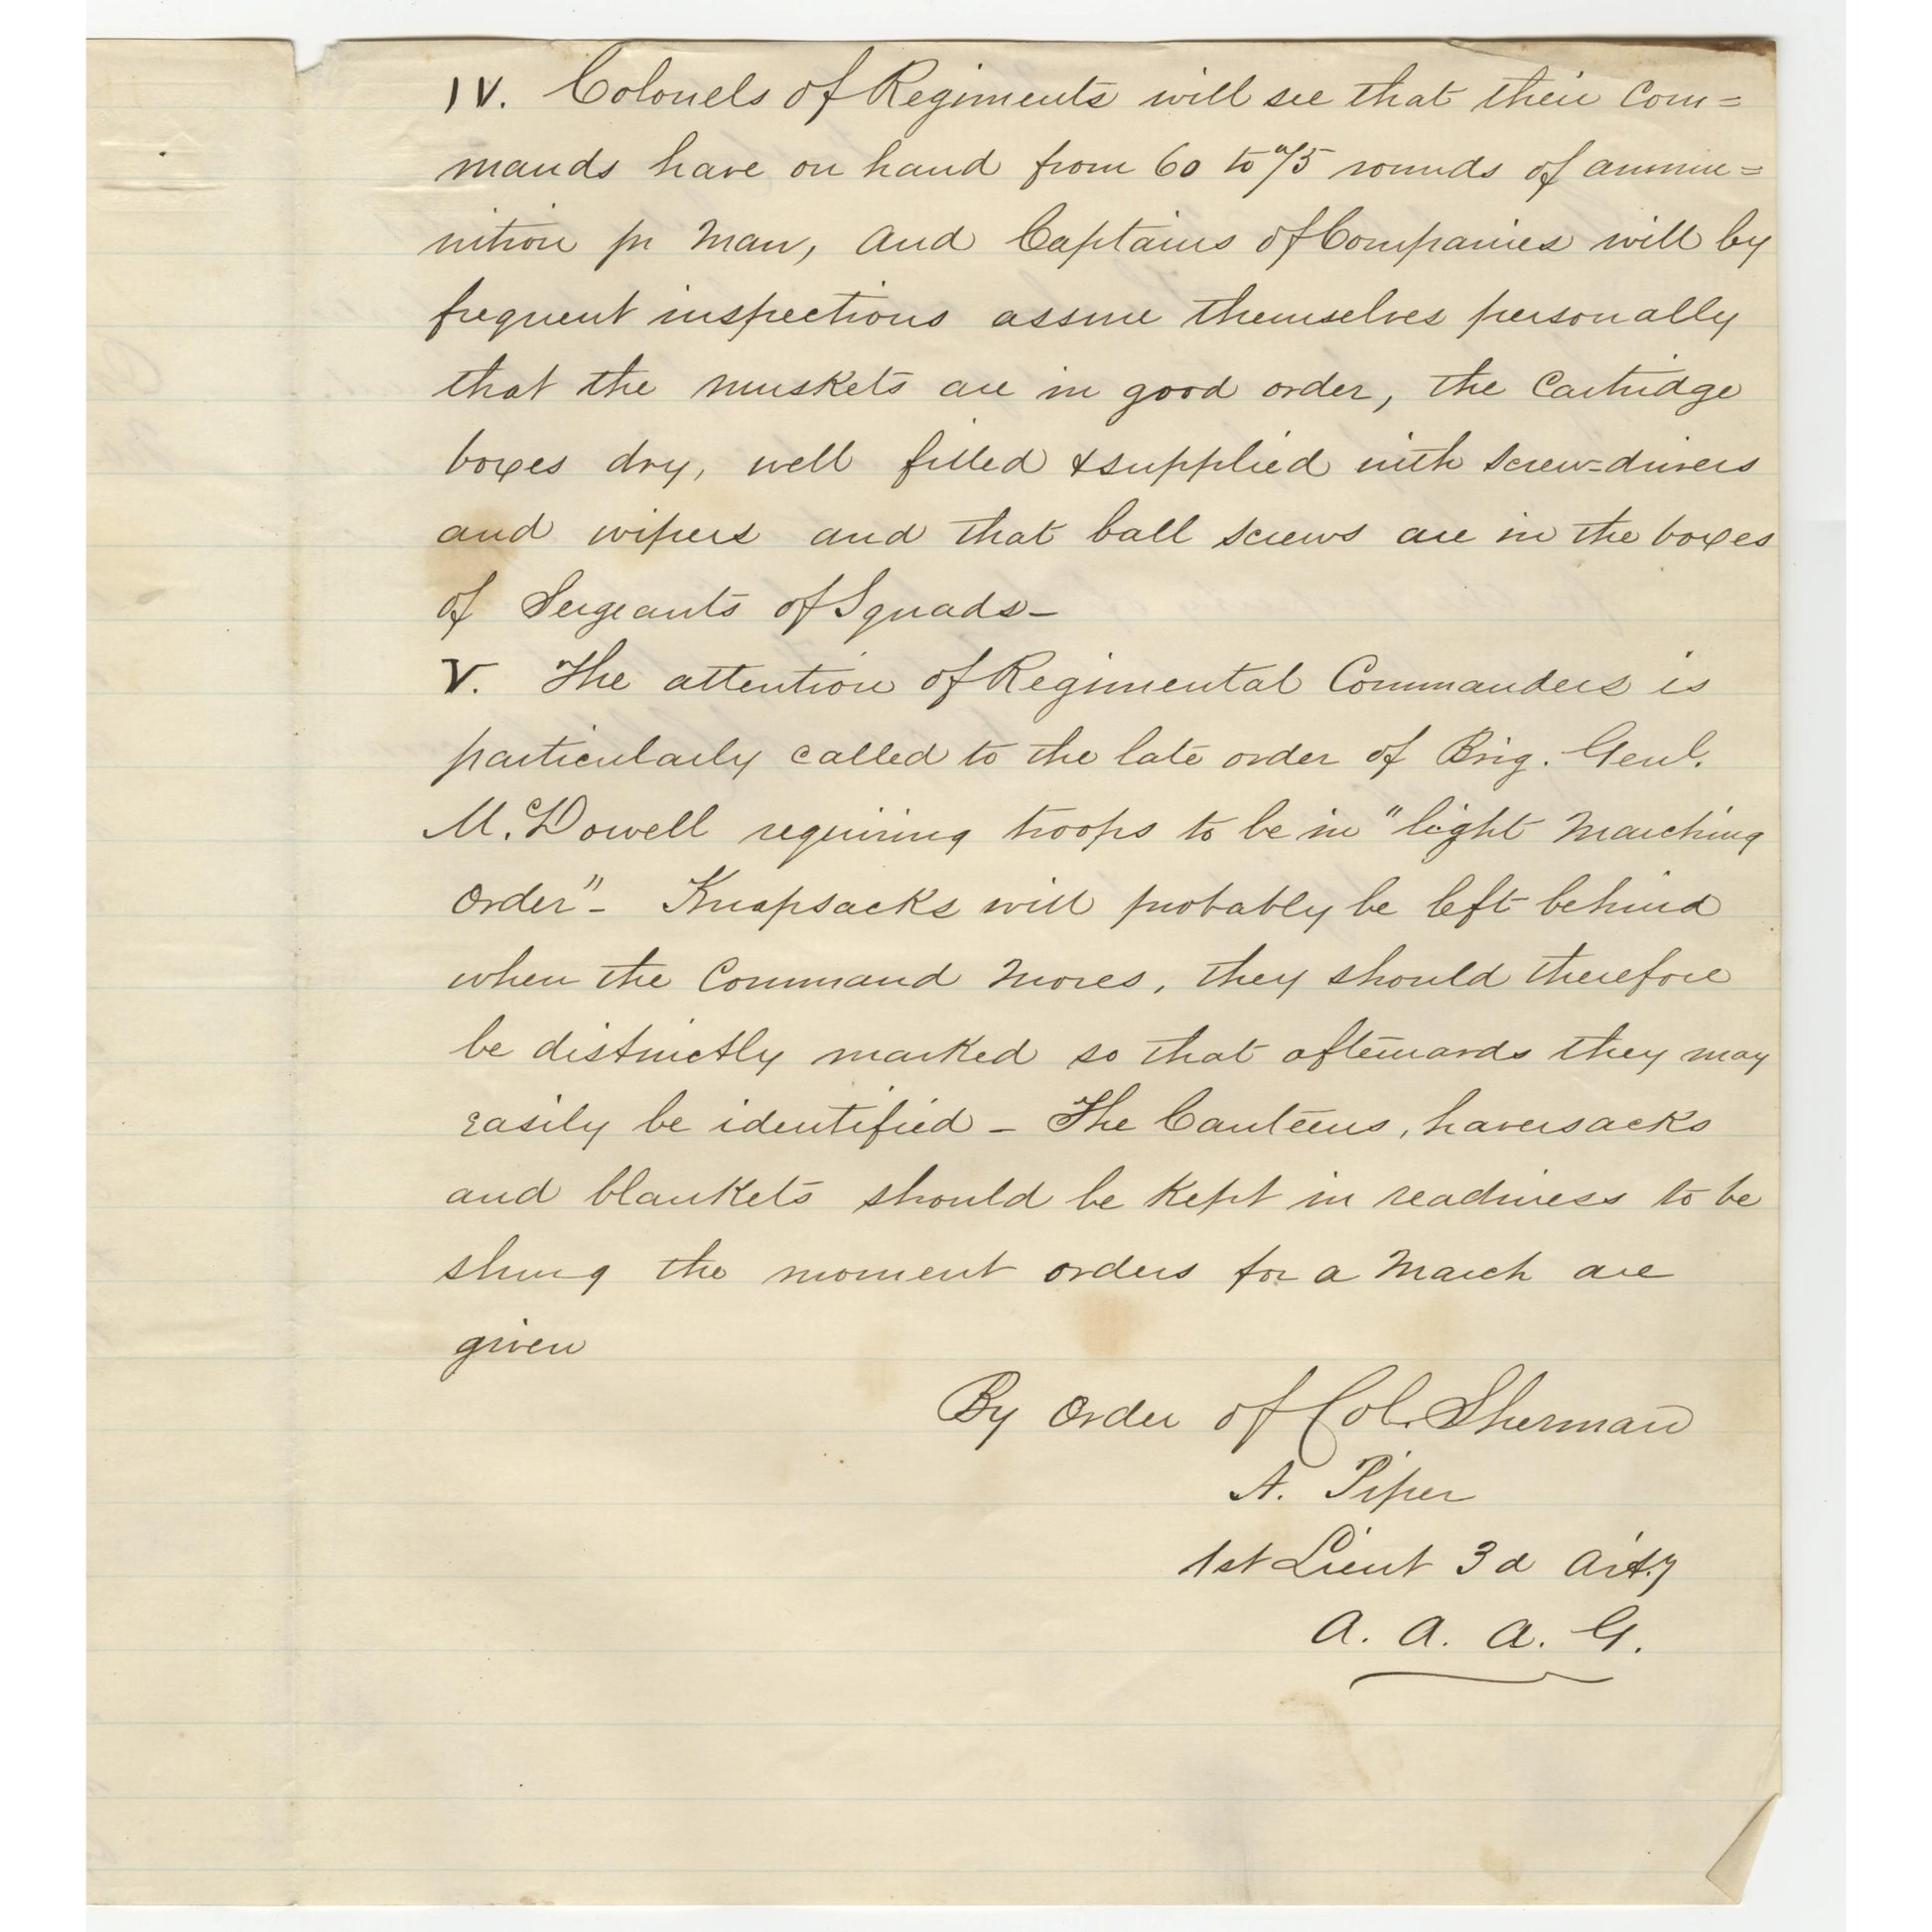 IV. Colonels of Regiments will see that their Com=
mands have on hand from 60 to 75 rounds of ammu=
nition pr Man, and Captains of Companies will by
frequent inspections assure themselves personally
that the muskets are in good order, the Cartridge
boxes dry, well filled & supplied with Screw=drivers
and wipers and that ball screws are in the boxes
of Sergeants of Squads_
V. The attention of Regimental Commanders is
particularly called to the late order of Brig. Genl.
McDowell requiring troops to be in "light Marching
Order"_ Knapsacks will probably be left behind
when the Command Moves, they should therefore
be distinctly marked so that afterwards they may
easily be identified _ The Canteens, haversacks
and blankets should be Kept in readiness to be
slung the moment orders for a March are
given
By Order of Col. Sherman
A. Piper
1st Lieut 3d Arty
A. A. A. G.